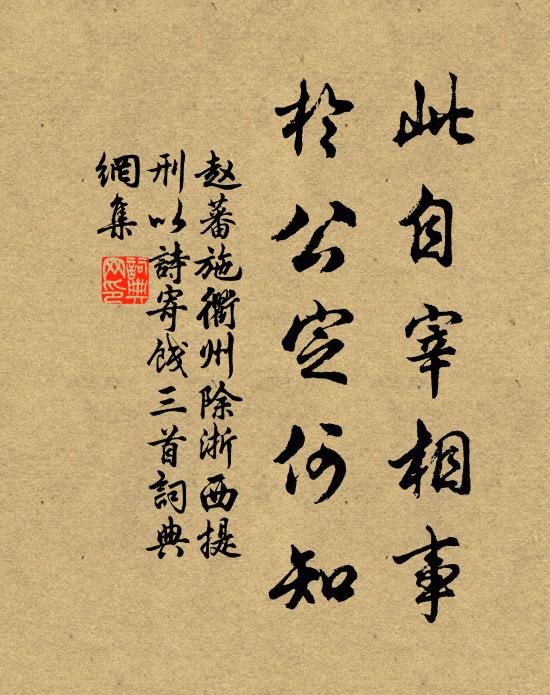 此自宰相事
於公定何知
赵蕃施衢州除浙西提
刑以詩寄餞三首詞典
網集
詞典
网印